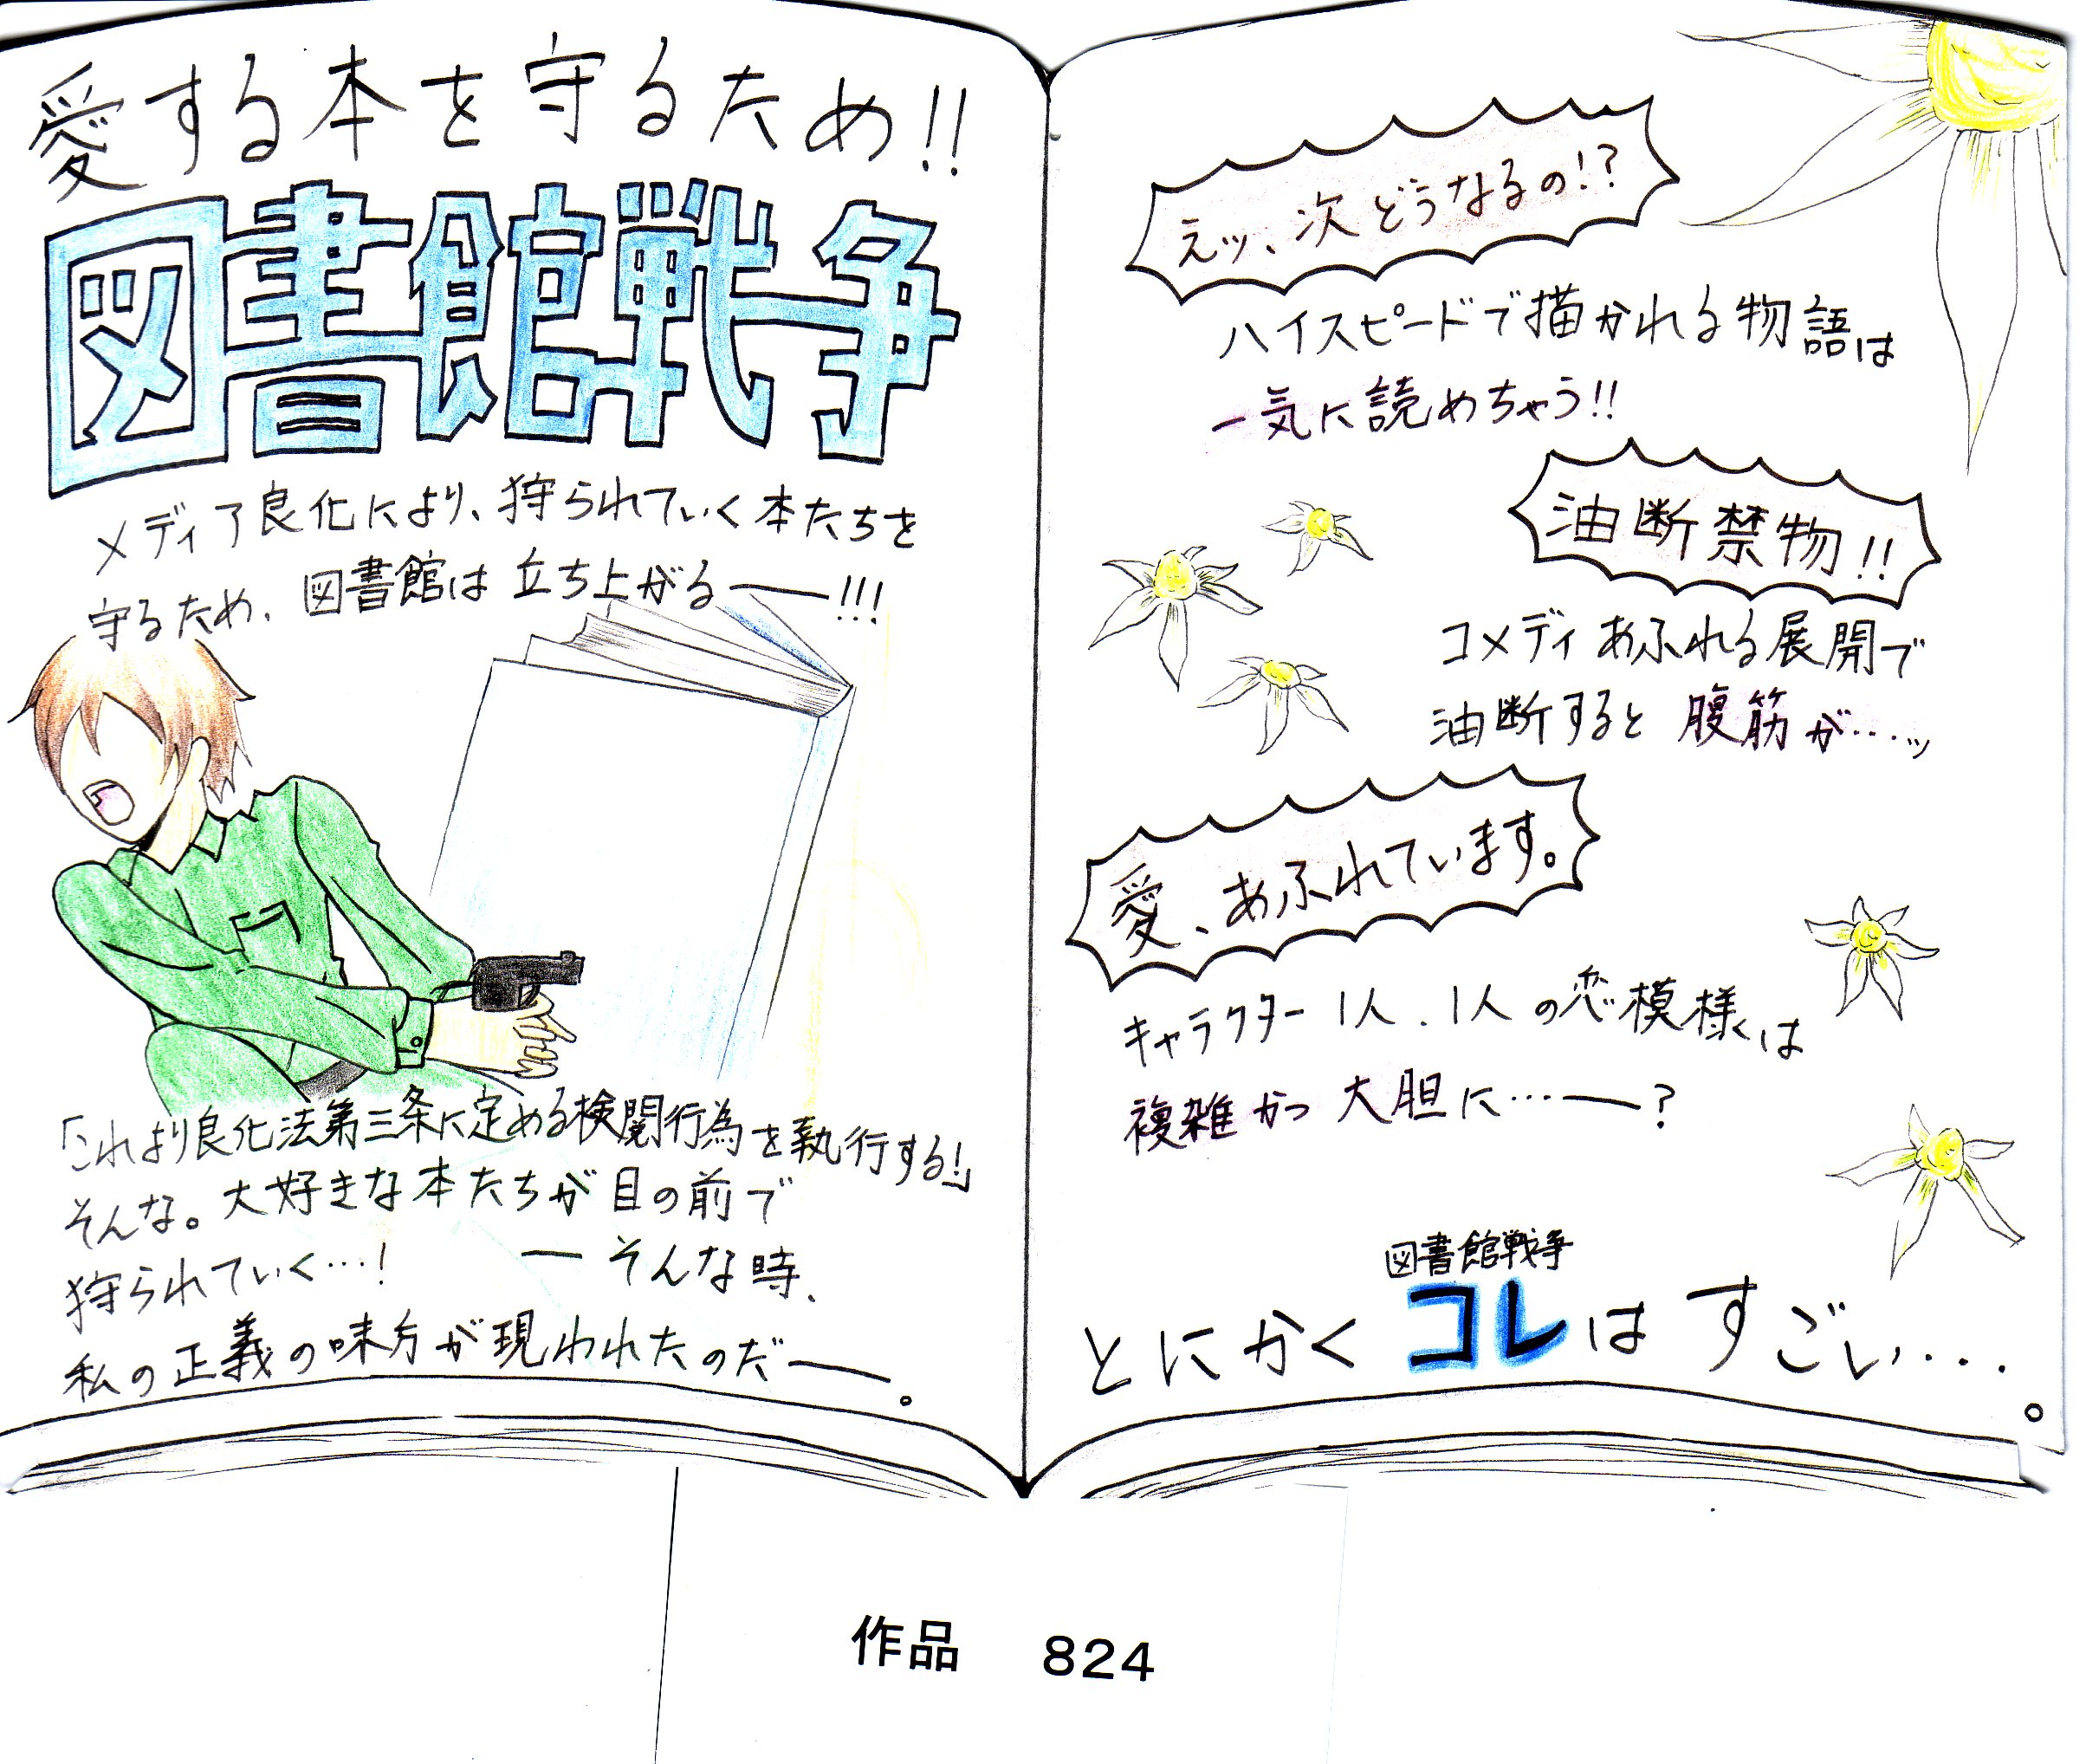 愛する本を守るため!!
図書館戦争
メディア良化により、狩られていく本たちを
守るため、図書館は立ち上がる――!!!
「これより良化法第三条に定める検閲行為を執行する!」
そんな。大好きな本たちが目の前で
狩られていく…! ―そんな時、
私の正義の味方が現われたのだ――。
えッ、次どうなるの!?
ハイスピードで描かれる物語は
一気に読めちゃう!!
油断禁物!!
コメディあふれる展開で
油断すると腹筋が…ッ
愛、あふれています。
キャラクター1人、1人の恋模様は
複雑かつ大胆に…――?
図書館戦争
とにかくコレはすごい…。
作品 824